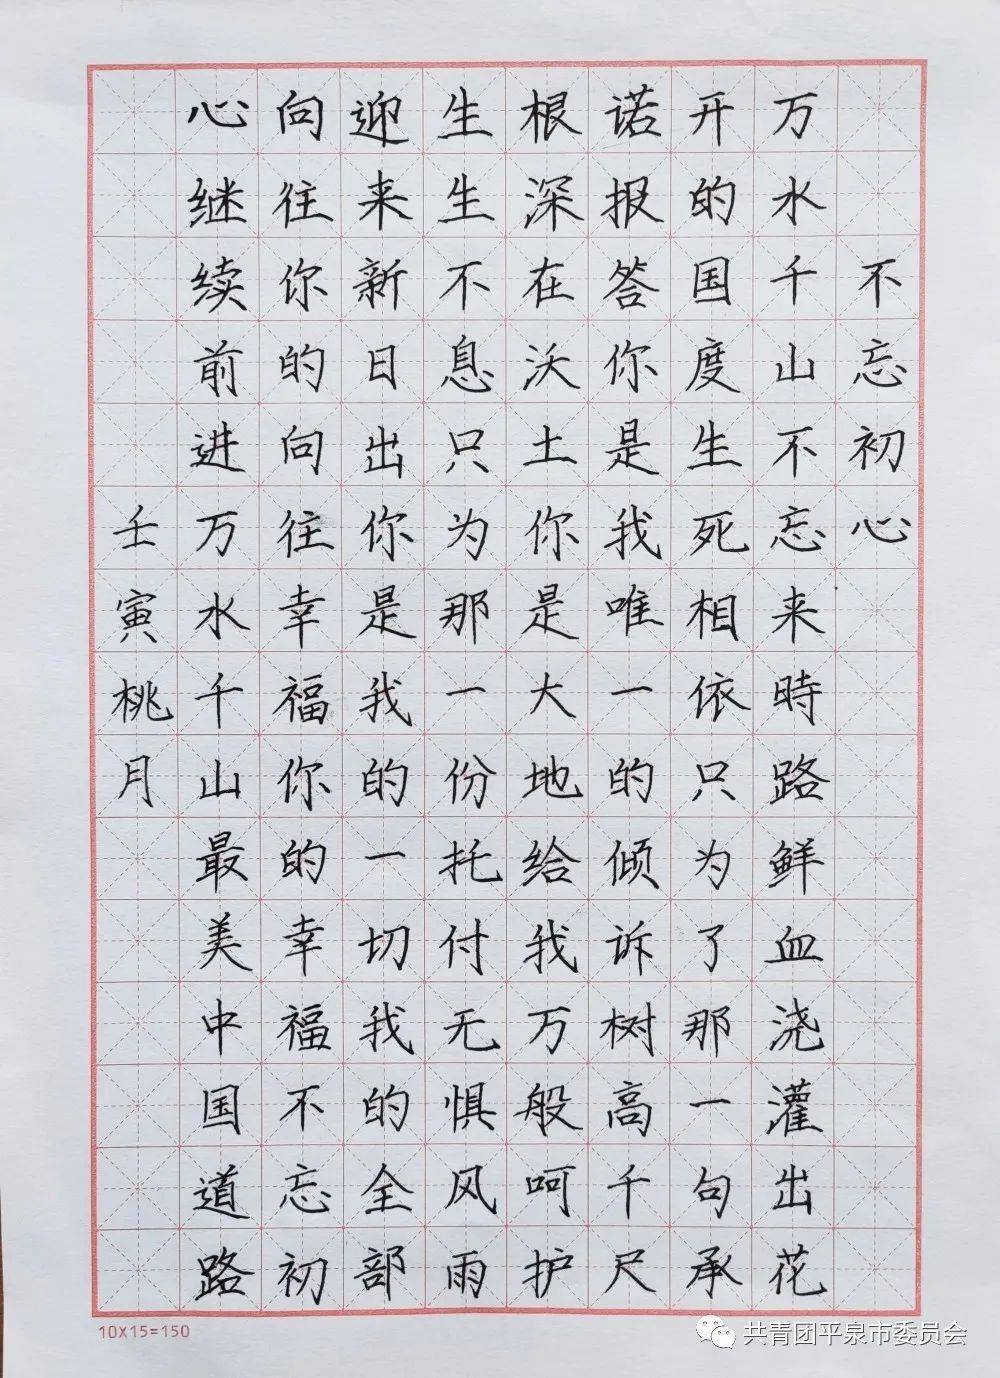 不忘初心
万水千山不忘来時路鲜血浇灌出花
开的国度生死相依只为了那一句承
诺报答你是我唯一的倾诉树高千尺
根深在沃土你是大地给我万般呵护
生生不息只为那一份托付无惧风雨
迎来新日出你是我的一切我的全部
向往你的向往幸福你的幸福不忘初
心继续前进万水千山最美中国道路
壬寅桃月
10X15=150
共青团平泉市委员会